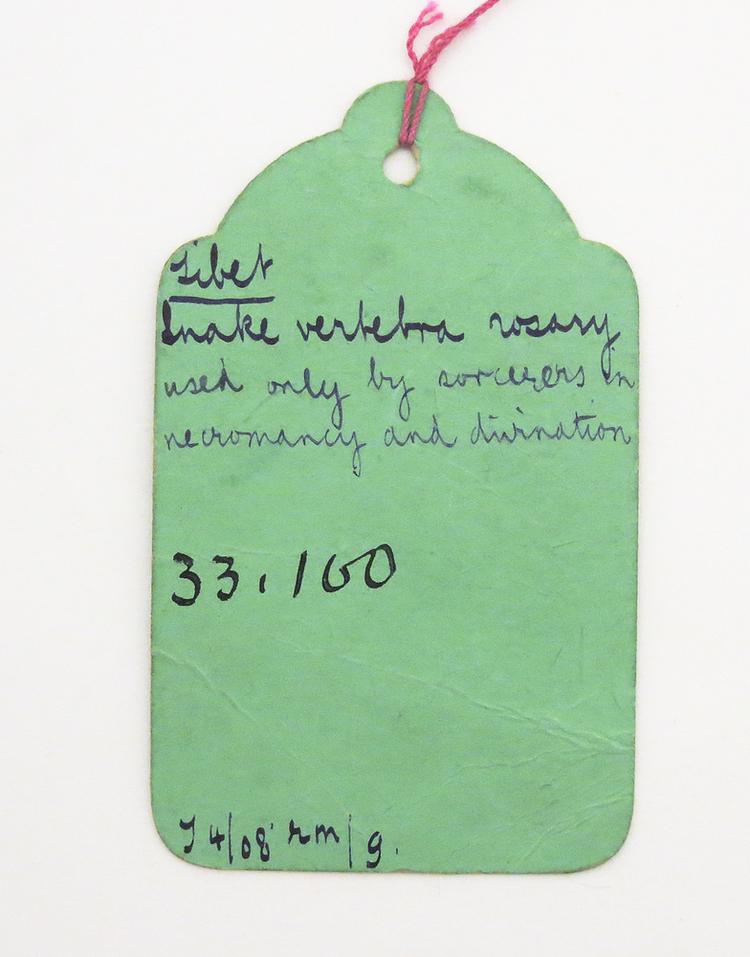 Tibet
Snake vertebra rosary
used only by sorcerers in
necromancy and divination
33.160